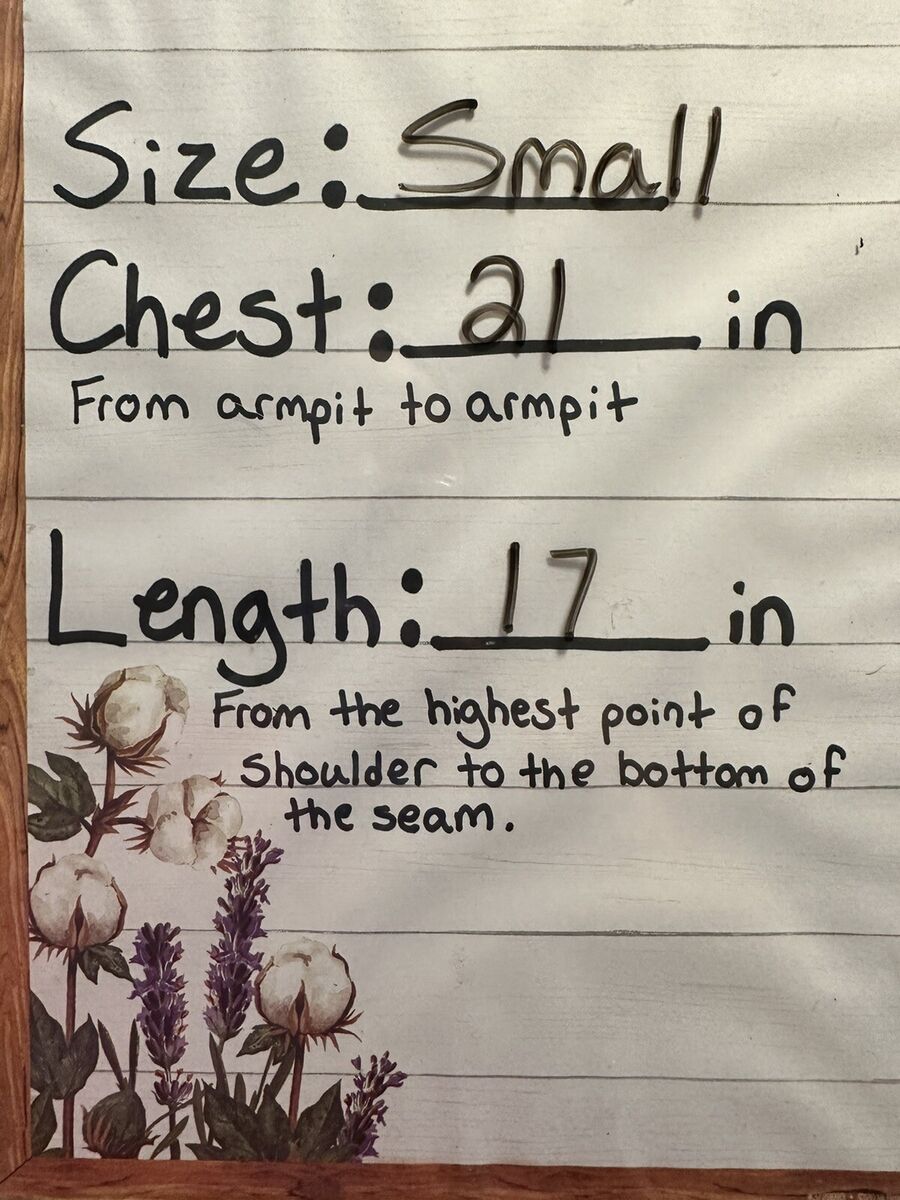 Size: Small
Chest: 21 in
From armpit to armpit
Length: 17 in
From the highest point of
shoulder to the bottom of
the seam.